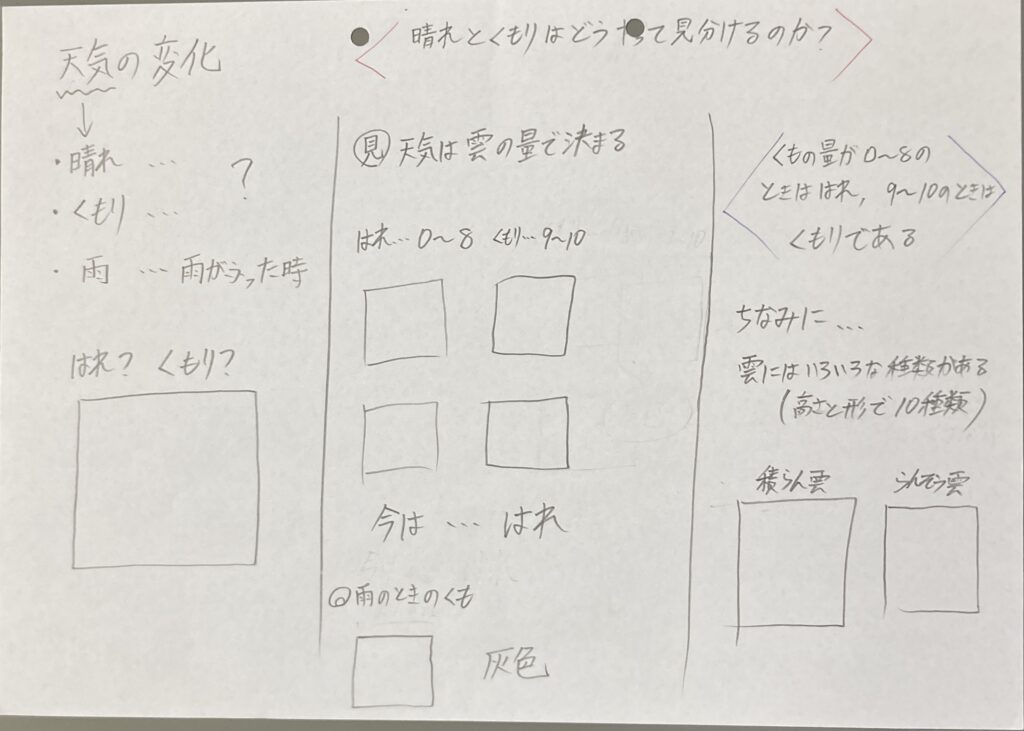 天気の変化
・晴れ …
・くもり …
?
・雨 … 雨がふった時
はれ? くもり?
晴れとくもりはどうやって見分けるのか?
見 天気は雲の量で決まる
はれ…0〜8 くもり…9〜10
今は … はれ
雨のときのくも
灰色
くもの量が0〜8の
ときははれ, 9〜10のときは
くもりである
ちなみに…
雲にはいろいろな種類がある
(高さと形で10種類)
積らん雲 らんそう雲